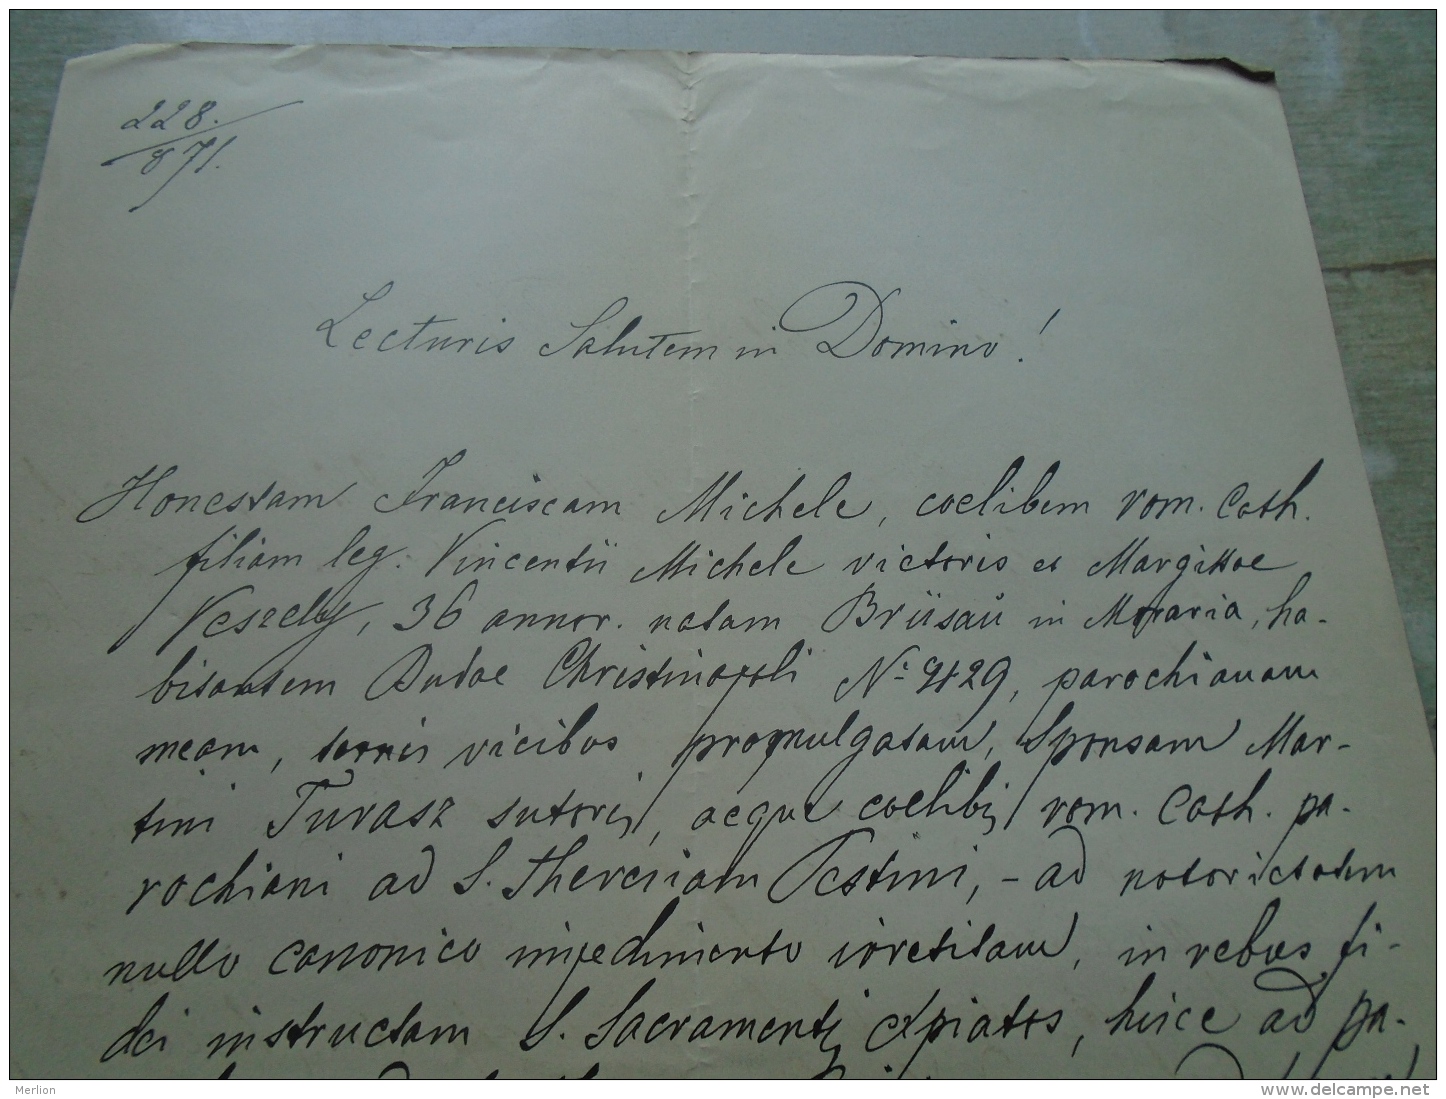 228.
871.
Lecturis Salutem in Domino!
Honestam Franciscam Michele, coelibem rom. Cath.
filiam leg. Vincentii Michele victoris et Margithae
Veszely, 36 annor. natam Brüsaü in Moravia, ha-
bitantem Budae Christinopoli No 429, parochianam
meam, ternis vicibus promulgatam, Sponsam Mar-
tini Turasz sutoris, aeque coelibis rom. Cath. pa-
rochiani ad S. Theresiam Pestini, - ad notorietatem
nullo canonico impedimento irretitam, in rebus fi-
dei instructam S. Sacramentis expiatos, hisce ad pa-
Merlion
www.delcampe.net